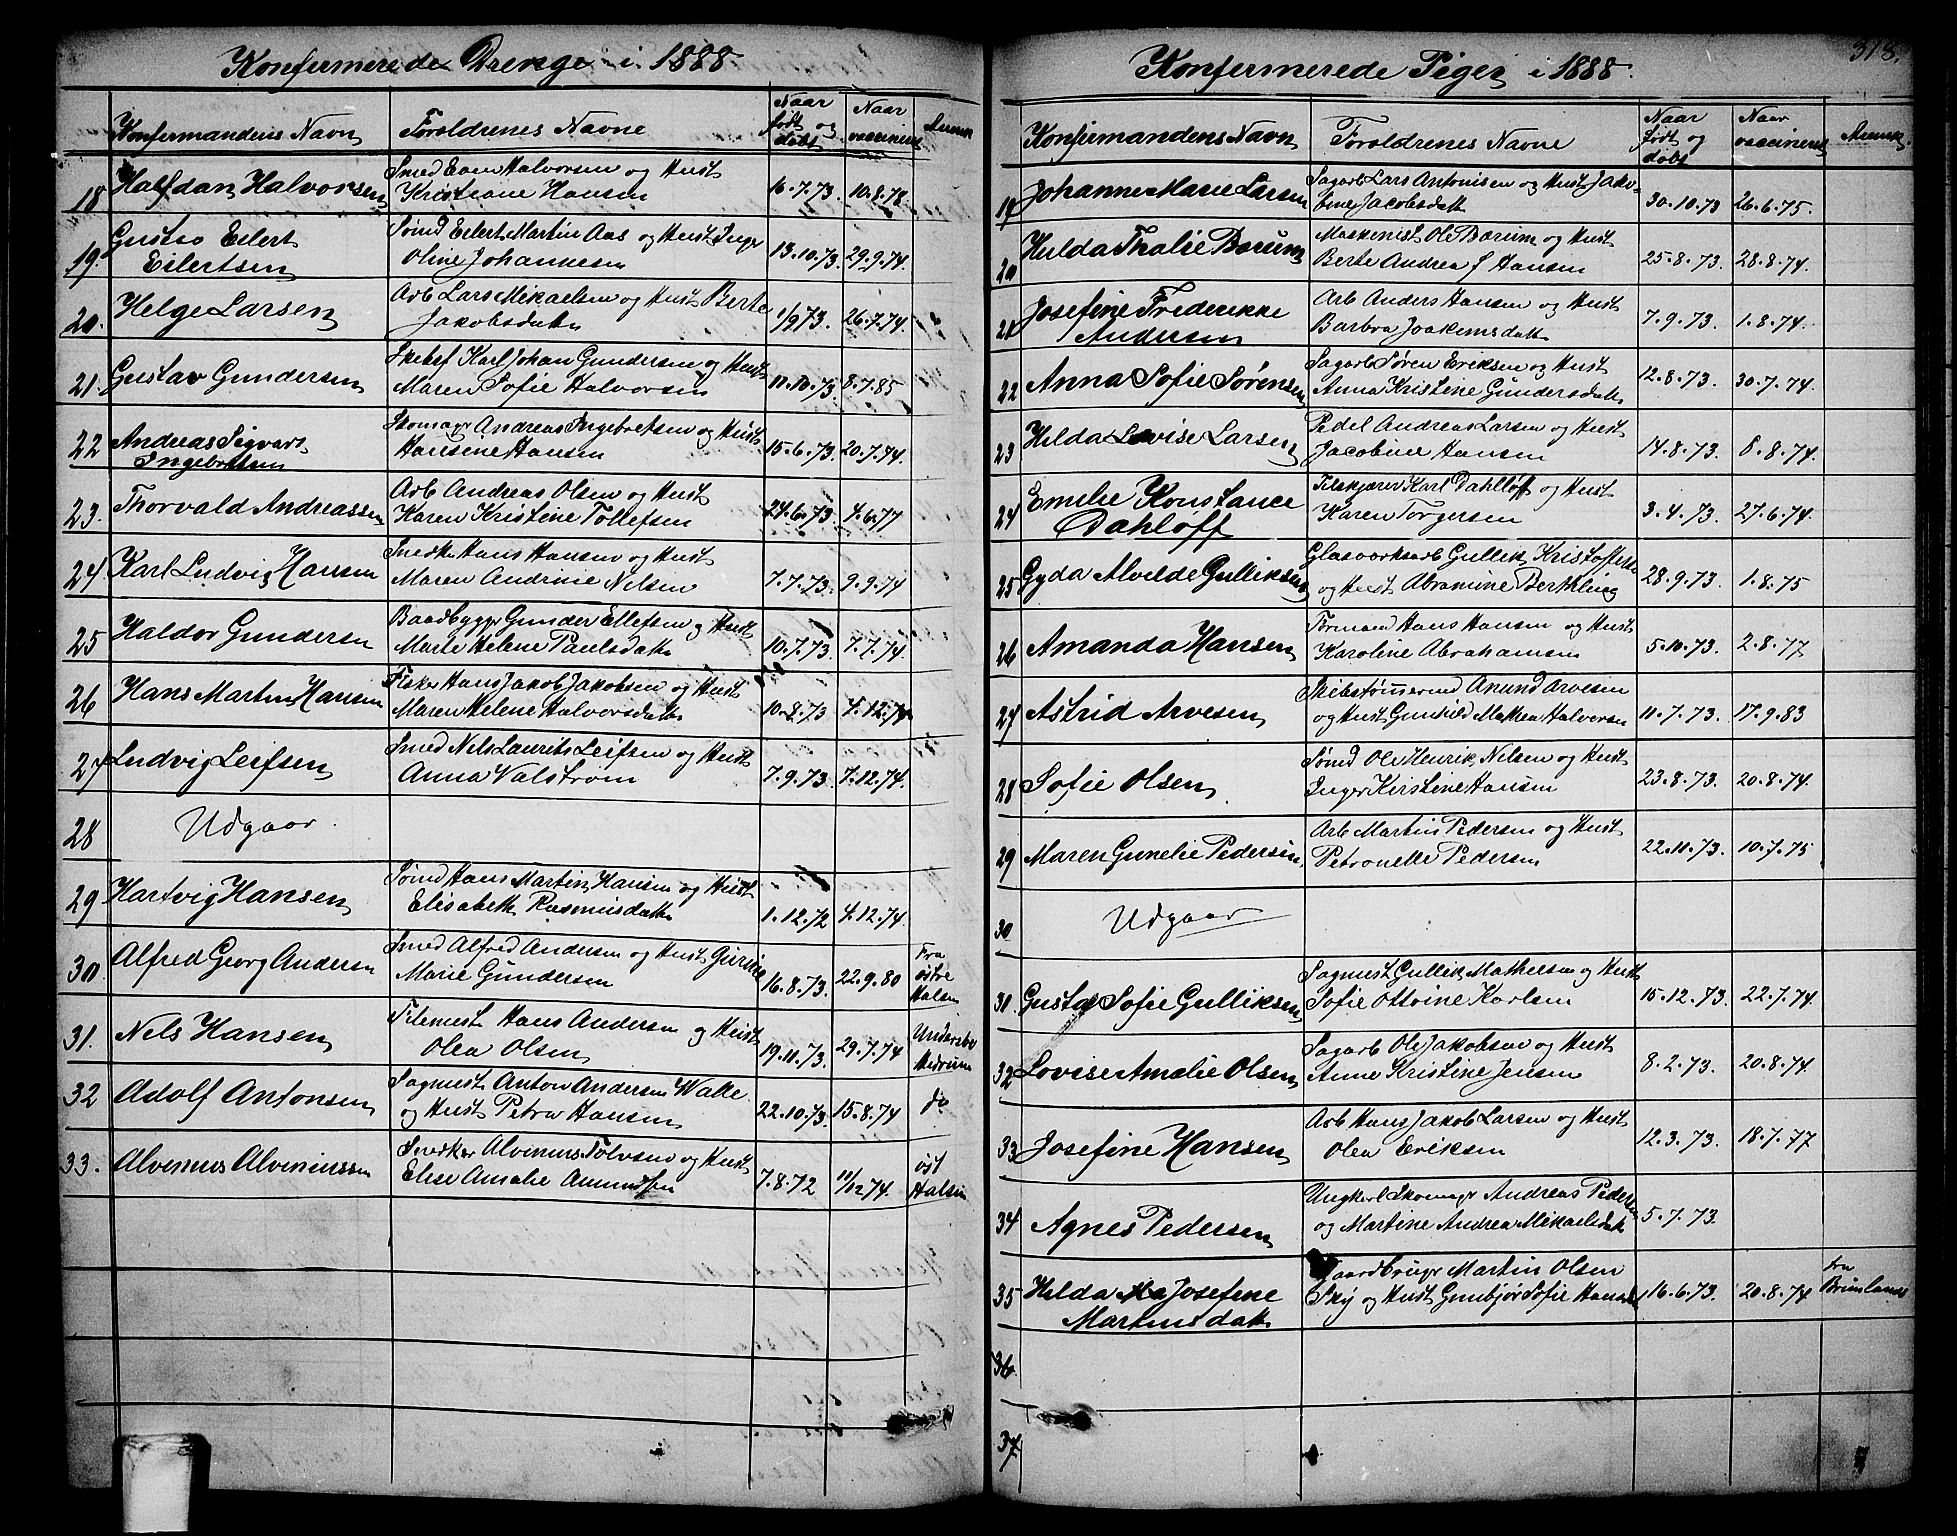 Konfermerede Drenge i 1888
Konfermandens Navn | Foreldrenes Navne | Naar født og døbt | Naar vaccineret | Anmek
18 | Halfdan Halvorsen | Smed Halvorsen og Hust Kristiane Hansen | 16.7.73. | 10.8.78.
19. | Gustav Eilert Eilertsen | Sømd Eilert Martin Aas og Hust Inger Oline Johannesen | 13.10.73. | 29.9.74.
20. | Helge Larsen | Arb Lars Mikaelsen og Hust Berte Jakobsdatt | 1/9 73. | 26.7.74.
21. | Gustav Gundersen | Skibsf Karl Johan Gundersen og Hust Maren Sofie Halvorsen | 11.10.73. | 8.7.85
22 | Andreas Sigvart Ingebretsen | Skomagr Andreas Ingebretsen og Hust Hansine Hansen | 15.6.73. | 20.7.74.
23. | Thorvald Andreassen | Arb Andreas Olsen og Hust Karen Kristine Tollefsen | 24.6.73. | 4.6.77
24 | Karl Ludvig Hansen | Snedk Hans Hansen og Hust Maren Andrine Nilsen | 7.7.73. | 9.9.74
25 | Haldor Gundersen | Baadbyggr Gunder Ellefsen og Hust Marte Helene Paulsdatt | 10.7.73. | 7.7.74.
26 | Hans Martin Hansen | Fisker Hans Jakob Jakobsen og Hust Maren Helene Halvorsdatt | 10.8.73 | 4.12.74
27 | Ludvig Leifsen | Smed Nels Laurits Leifsen og Hust Anna Valstrom | 7.9.73. | 7.12.74.
28 | Udgaar.
29 | Hartvig Hansen | Sømd Hans Martin Hansen og Hust Elisabeth Rasmusdatt | 1.12.72 | 4.12.74
30 | Alfred Georg Andersen | Smed Alfred Andersen og Hust Gurine Marie Gundersen | 16.8.73. | 22.9.80 | Fra østre Halsen
31. | Nels Hansen | Filemest Hans Andersen og Hust Olea Olsen | 19.11.73. | 29.7.74 | Hedrum
32 | Adolf Antonsen | Sagmest Anton Andersen Walle og Hust Petra Hansen | 22.10.73. | 15.8.74 | do
33. | Alvenius Alveniussen | Snedker Alvenius Tolvsen og Hust Elise Amalie Amundsen | 7.8.72 | 11/12 74. | øst Halsen
318.
Konfermerede Piger i 1888.
Konfirmandens Navn | Foreldrenes Navne | Naar født og døbt | Naar vaccineret | Anmek.
19 | Johanne Marie Larsen | Sagarb Lars Antonisen og Hust Jakobine Jacobsdatt | 30.10.73 | 26.6.75.
20 | Hilda Thalie Bærum | Maskenist Ole Bærum og Hust Berte Andrea f Hansen | 25.8.73. | 28.8.74.
21 | Josefine Frederikke Andersen | Arb Anders Hansen og Hust Barbra Joakimsdatt | 7.9.73. | 1.8.74.
22 | Anna Sofie Sørensen | Sagarb Søren Eriksen og Hust Anna Kristine Gundersdatt | 12.8.73. | 30.7.74.
23 | Hilda Lovise Larsen | Pedel Andreas Larsen og Hust Jacobine Hansen | 14.8.73. | 8.8.74.
24 | Emilie Konstance Dahløff | Filskjærer Karl Dahlløff og Hust Karen Torgersen | 3.4.73. | 27.6.74.
25 | Gyda Alvilde Gulliksen | Glasværksarb Gullik Kristoffersen og Hust Abramine Berthling | 28.9.73. | 1.8.75
26 | Amanda Hansen | Formand Hans Hansen og Hust Karoline Abrahamsen | 5.10.73. | 2.8.77
27 | Astrid Arvesen | Skibstømmermd Anund Arvesen og Hust Gunhild Mathea Halvorsen | 11.7.73. | 17.9.83
28 | Sofie Olsen | Sømd Ole Henrik Nilsen og Hust Inger Kirstine Hansen | 23.8.73. | 20.8.74.
29 | Maren Gunelie Pedersen | Arb Martin Pedersen og Hust Petronelle Pedersen | 22.11.73. | 10.7.75
30 | Udgaar
31. | Gusta Sofie Gulliksen | Sagmest Gullik Mathesen og Hust Sofie Ottine Karlsen | 15.12.73. | 22.7.74.
32 | Lovise Amalie Olsen | Sagarb Ole Jakobsen og Hust Anne Kristine Jensen | 8.2.73. | 20.8.74.
33 | Josefine Hansen | Arb Hans Jakob Larsen og Hust Olea Eriksen | 12.3.73. | 18.7.77
34 | Agnes Pedersen | Ungkarl Skomagr Andreas Pedersen og Martine Andrea Mikaelsdatt | 5.7.73.
35 | Hilda Josefine Martinsdatt | Gaardbrugr Martin Olsen Sky og Hust Gunbjør Sofie Hansdatt | 16.6.73. | 20.8.74 | fra Brunlanes
36.
37